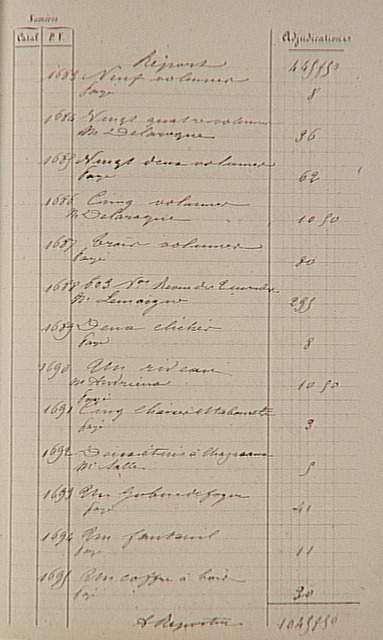 Numéros
Catal P.V. Adjudications
Report 445 f 50
1683 Neuf volumes
payé 8
1684 Vingt quatre volumes
Mr Delaroque 36
1685 Vingt deux volumes
payé 62
1686 Cinq volumes
Mr Delaroque 10 50
1687 Trois volumes
payé 80
1688 603 Nos Revue des
Mr Lemoigne 295
1689 Deux clichés
payé 8
1690 Un rideau
Mr 10 50
payé
1691 Cinq chaises
payé 3
1692 à
Mr Salle 5
1693 Un
payé 41
1694 Un fauteuil
payé 11
1695 Un coffre à bois
payé 30
A Reporter 1045 f 50